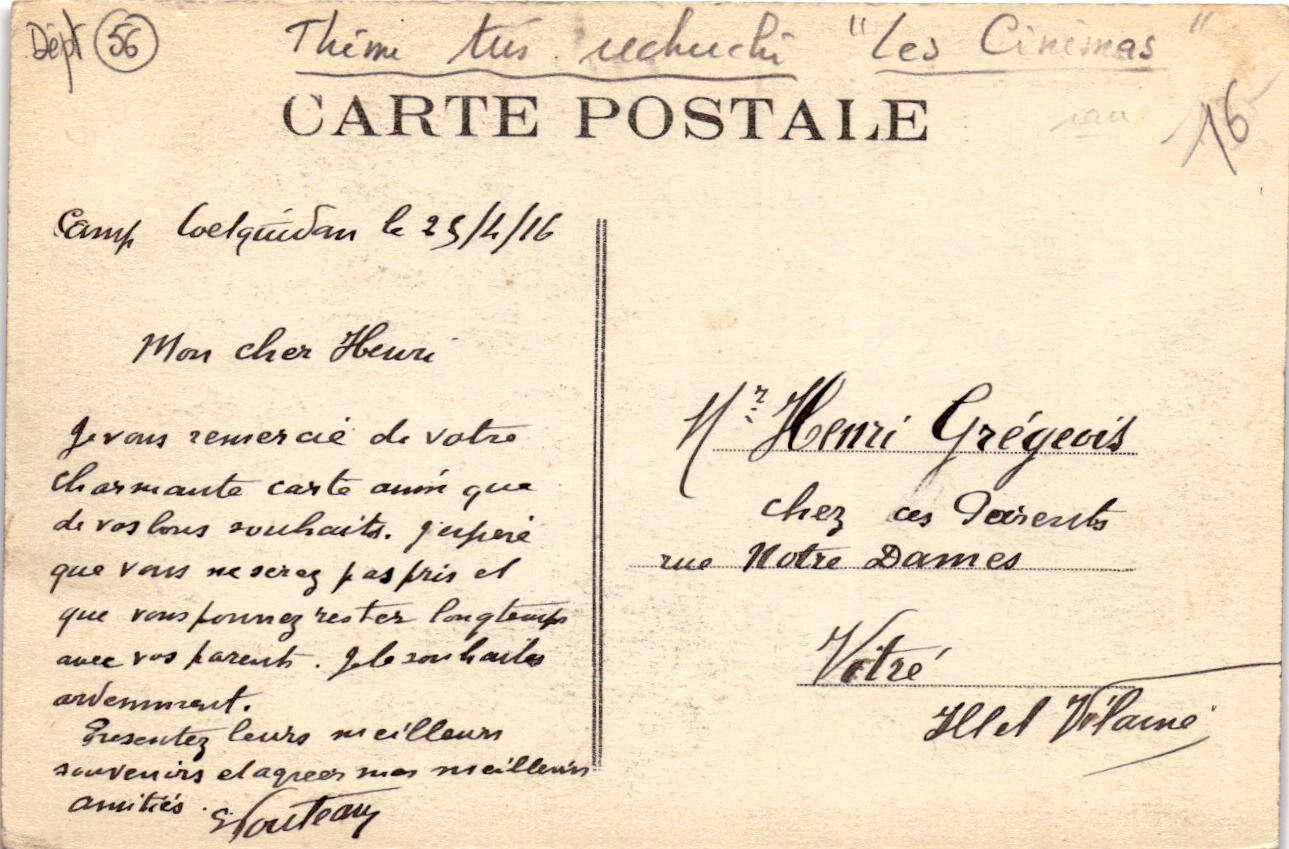 Dépt 56
Thème très recherché "Les Cinémas"
16
CARTE POSTALE
Camp Coëtquidan le 25/4/16
Mon cher Henri
Je vous remercie de votre
charmante carte ainsi que
de vos bons souhaits. J'espère
que vous ne serez pas pris et
que vous pourrez rester longtemps
avec vos parents. Je le souhaites
ardemment.
Presentez leurs meilleurs
souvenirs et agreer mes meilleurs
amitiés.
Mr Henri Grégeois
chez ces Parents
rue Notre Dames
Vitré
Ille et Vilaine